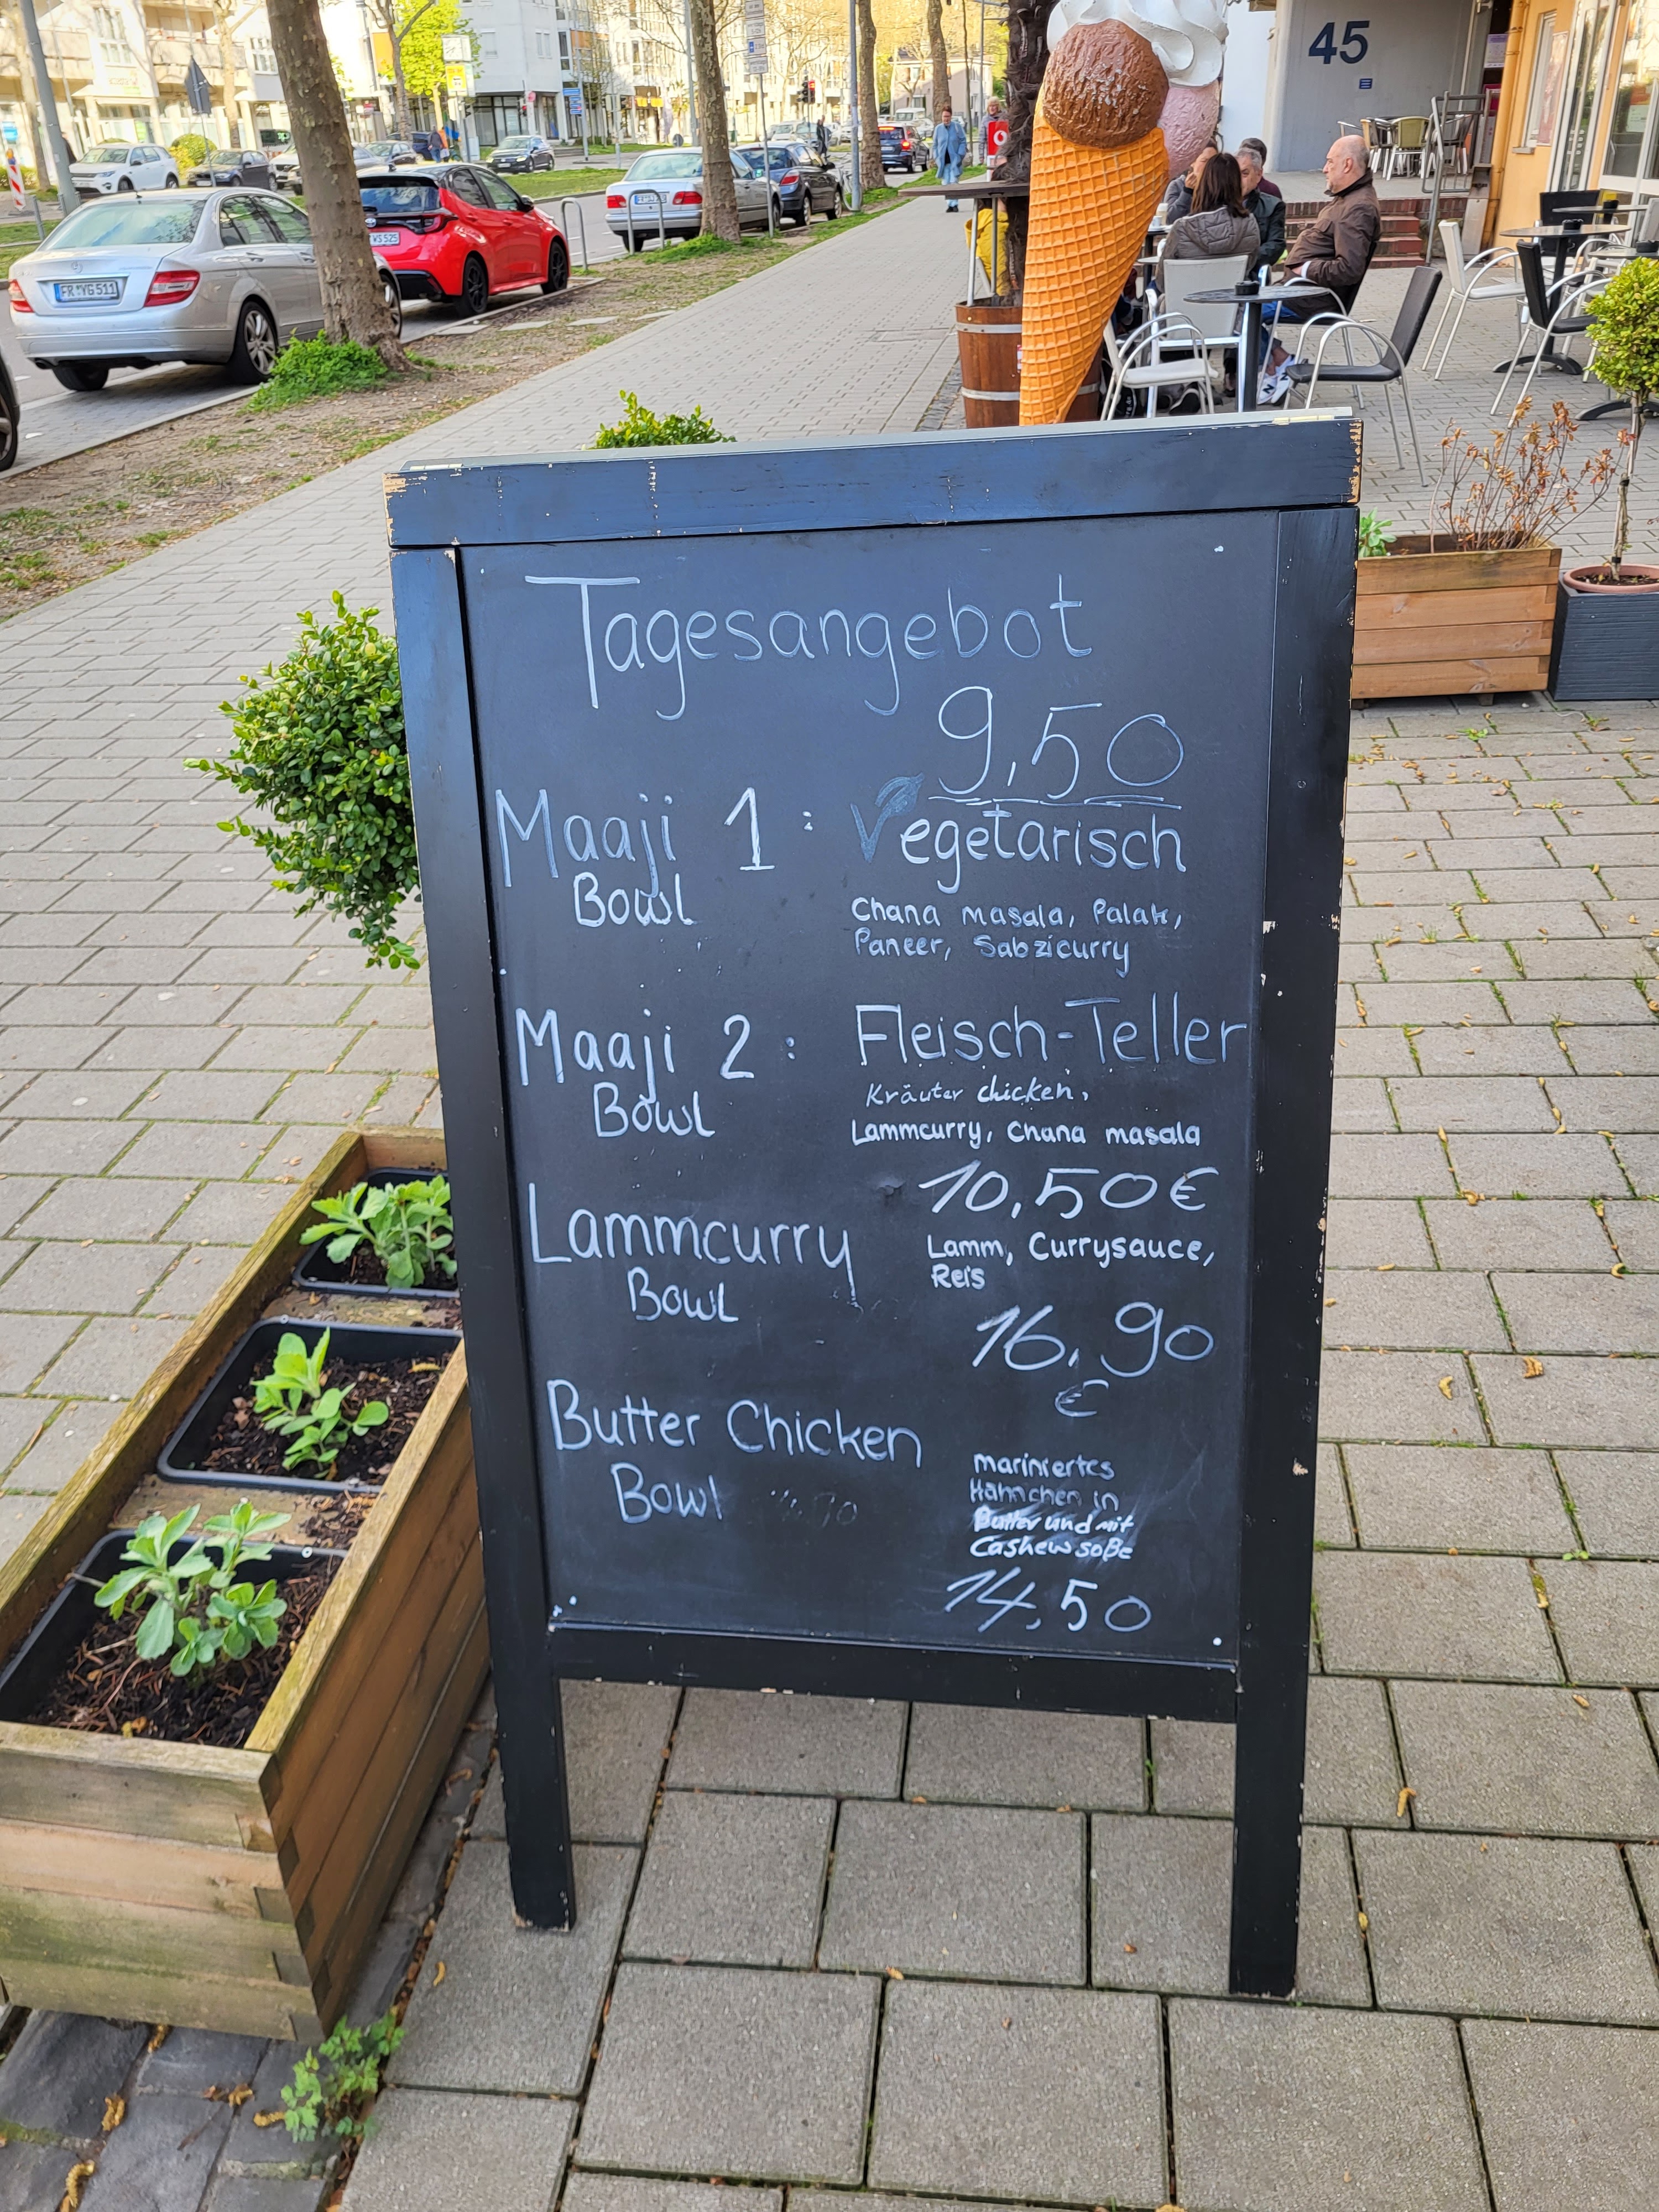 45
FR YG 511
VS 525
Tagesangebot
9,50
Maaji 1 : Vegetarisch
Bowl
Chana masala, Palak,
Paneer, Sabzicurry
Maaji 2 : Fleisch-Teller
Bowl
Kräuter chicken,
Lammcurry, Chana masala
10,50€
Lammcurry
Bowl
Lamm, Currysauce,
Reis
16,90
€
Butter Chicken
Bowl
mariniertes
Hähnchen in
Butter und mit
Cashew soße
14,50